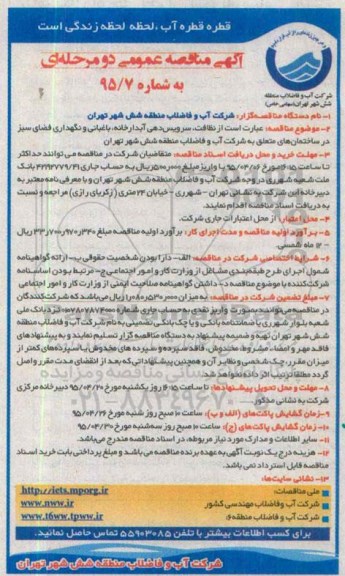 قطره قطره آب ، لحظه لحظه زندگی است
آگهی مناقصه عمومی دو مرحله‌ای
به شماره ۹۵/۷
شرکت آب و فاضلاب منطقه
شش شهر تهران (سهامی خاص)
۱- نام دستگاه مناقصه‌گزار: شرکت آب و فاضلاب منطقه شش شهر تهران
۲- موضوع مناقصه: عبارت است از نظافت، سرویس‌دهی آبدارخانه، باغبانی و نگهداری فضای سبز
در ساختمان‌های متعلق به شرکت آب و فاضلاب منطقه شش شهر تهران
۳- مهلت خرید و محل دریافت اسناد مناقصه: متقاضیان شرکت در مناقصه می توانند حداکثر
ریال به حساب جاری ۴۲۹۲۷۷۹/۲۱ بانک
ملت شعبه شهرری در وجه شرکت آب و فاضلاب منطقه شش شهر تهران و با معرفی‌نامه معتبر به
دبیرخانه این شرکت به نشانی تهران - شهرری - خیابان ۲۴ متری (زکریای رازی) مراجعه و نسبت
به دریافت اسناد مناقصه اقدام نمایند.
۴- محل اعتبار: از محل اعتبارات جاری شرکت.
۵- برآورد اولیه مناقصه و مدت اجرای کار: برآورد اولیه مناقصه مبلغ
- ۱۲ ماه شمسی.
۶- شرایط اختصاصی شرکت در مناقصه: الف- دارا بودن شخصیت حقوقی ب- ارائه گواهینامه
شمول اجرای طرح طبقه‌بندی مشاغل از وزارت کار و امور اجتماعی ج- مرتبط بودن اساسنامه
شرکت‌کننده با موضوع مناقصه د- داشتن گواهینامه صلاحیت ایمنی از وزارت کار و امور اجتماعی
۷- مبلغ تضمین شرکت در مناقصه: به میزان ریال می‌باشد که شرکت‌کنندگان
در مناقصه می‌توانند بصورت واریز نقدی به حساب جاری شماره نزد بانک ملی
شعبه بلوار شهرری یا ضمانتنامه بانکی و یا چک بانکی تضمینی به نام شرکت آب و فاضلاب منطقه
شش شهر تهران تهیه و ضمیمه پیشنهاد به دستگاه مناقصه گزار تسلیم نمایند و به پیشنهادهای
فاقد مهر و امضاء، مشروط، مخدوش، فاقد سپرده و سپرده های مخدوش یا سپرده‌های کمتر از
میزان مقرر، چک شخصی و نظایر آن و همچنین پیشنهاداتی که بعد از انقضای مدت مقرر واصل
گردد مطلقا ترتیب اثر داده نخواهد شد.
۸- مهلت و محل تحویل پیشنهادها: تا ساعت روز یکشنبه مورخ ۹۵/۰۴/۲۰ دبیرخانه مرکزی
شرکت به نشانی مذکور
۹- زمان گشایش پاکت‌های (الف و ب): ساعت ۱۰ صبح روز شنبه مورخ ۹۵/۰۴/۲۶
۱۰- زمان گشایش پاکت‌های (ج): ساعت ۱۰ صبح روز مورخ ۹۵/۰۴/۳۰
۱۱- سایر اطلاعات و مدارک مورد نیاز مربوطه، در اسناد مناقصه مندرج می‌باشد.
۱۲- هزینه درج یک نوبت آگهی به عهده برنده مناقصه می‌باشد و مبلغ پرداختی بابت خرید اسناد
مناقصه قابل استرداد نمی باشد.
۱۳- نشانی سایت‌ها:
ملی مناقصات: http://iets.mporg.ir
شرکت آب وفاضلاب مهندسی کشور www.nww.ir
شرکت آب وفاضلاب منطقه۶: www.t6ww.tpww.ir
برای کسب اطلاعات بیشتر با تلفن ۵۵۹۰۳۰۸۵ تماس حاصل نمائید.
شرکت آب و فاضلاب منطقه شش شهر تهران